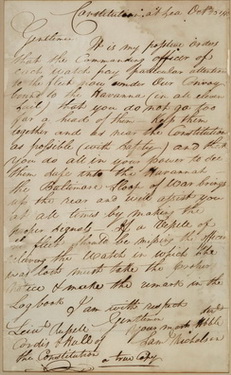 Constitution at Sea Octbr
Gentlemen
It is my positive orders
that the Commanding officer of
each watch pay particular attention
to the fleet now under our Convoy
bound to the Havannah (in all
that you do not go too
far a head of them keep them
together and as near the Constitution
as possible (with safety) and that
you do all in your power to see
them safe into the Havannah
the Baltimore Sloop of War brings
up the rear and will assist you
at all times by making the
proper signals If a Vessel of
fleet should be missing the officer
having the watch in which she
was lost must take the proper
notice & make the remark in the
Log book I am with respect
Gentlemen
your most Hble
Sam Nicholson
of the Constitution a true Copy